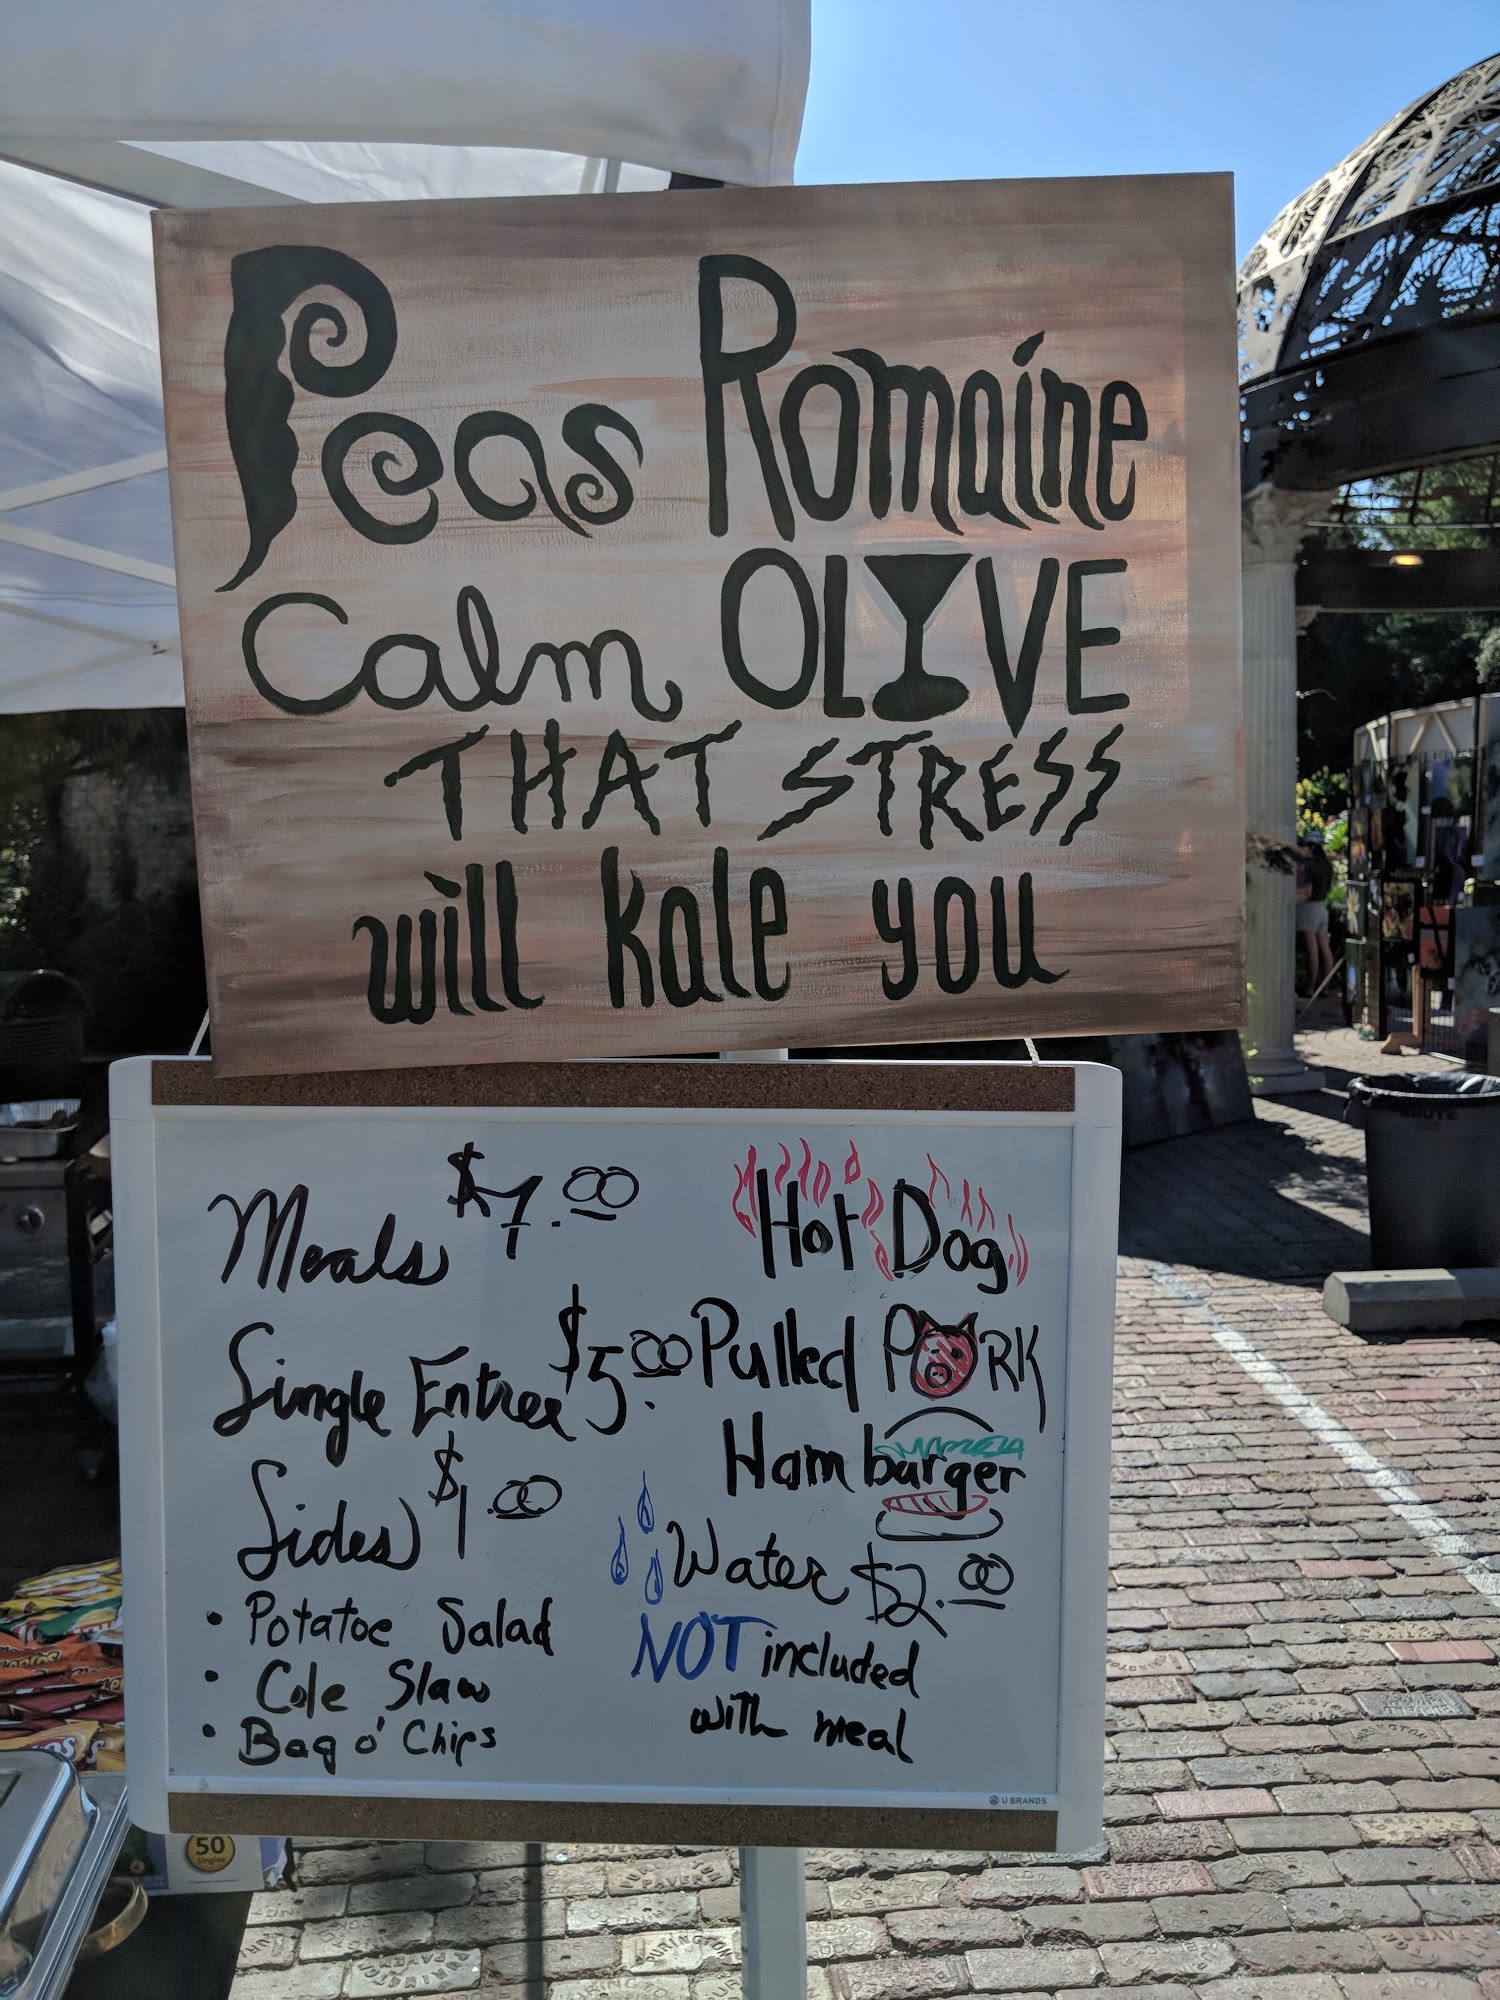 Peas Romaine
Calm OLIVE
THAT STRESS
will kale you
Meals $7.00
Single Entree $5.00
Sides $1.00
• Potatoe Salad
• Cole Slaw
• Bag o' Chips
Hot Dog
Pulled PORK
Hamburger
Water $2.00
NOT included
with meal
U BRANDS
50
Singles
BRUTE